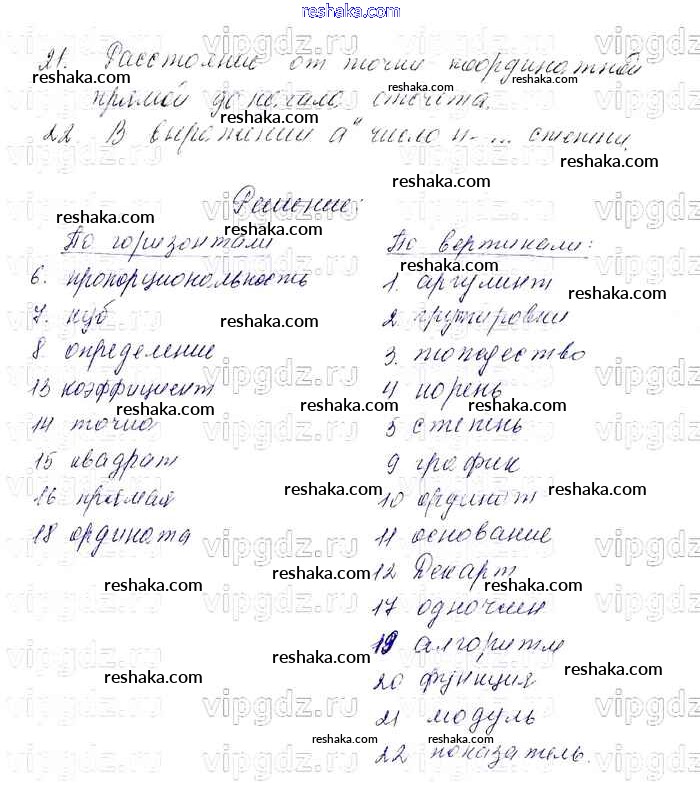 reshaka.com
21. Расстояние от точки координатной
прямой до начала отсчета.
22 В выражении aⁿ число n - ... степени.
Решение:
По горизонтали
6. пропорциональность
7. куб
8 определение
13 коэффициент
14 точка
15 квадрат
16 прямая
18 ордината
По вертикали:
1. аргумент
2 группировки
3. тождество
4 корень
5 степень
9 график
10 ординат
11 основание
12 Декарт
17 одночлен
19 алгоритм
20 функция
21 модуль
22 показатель.